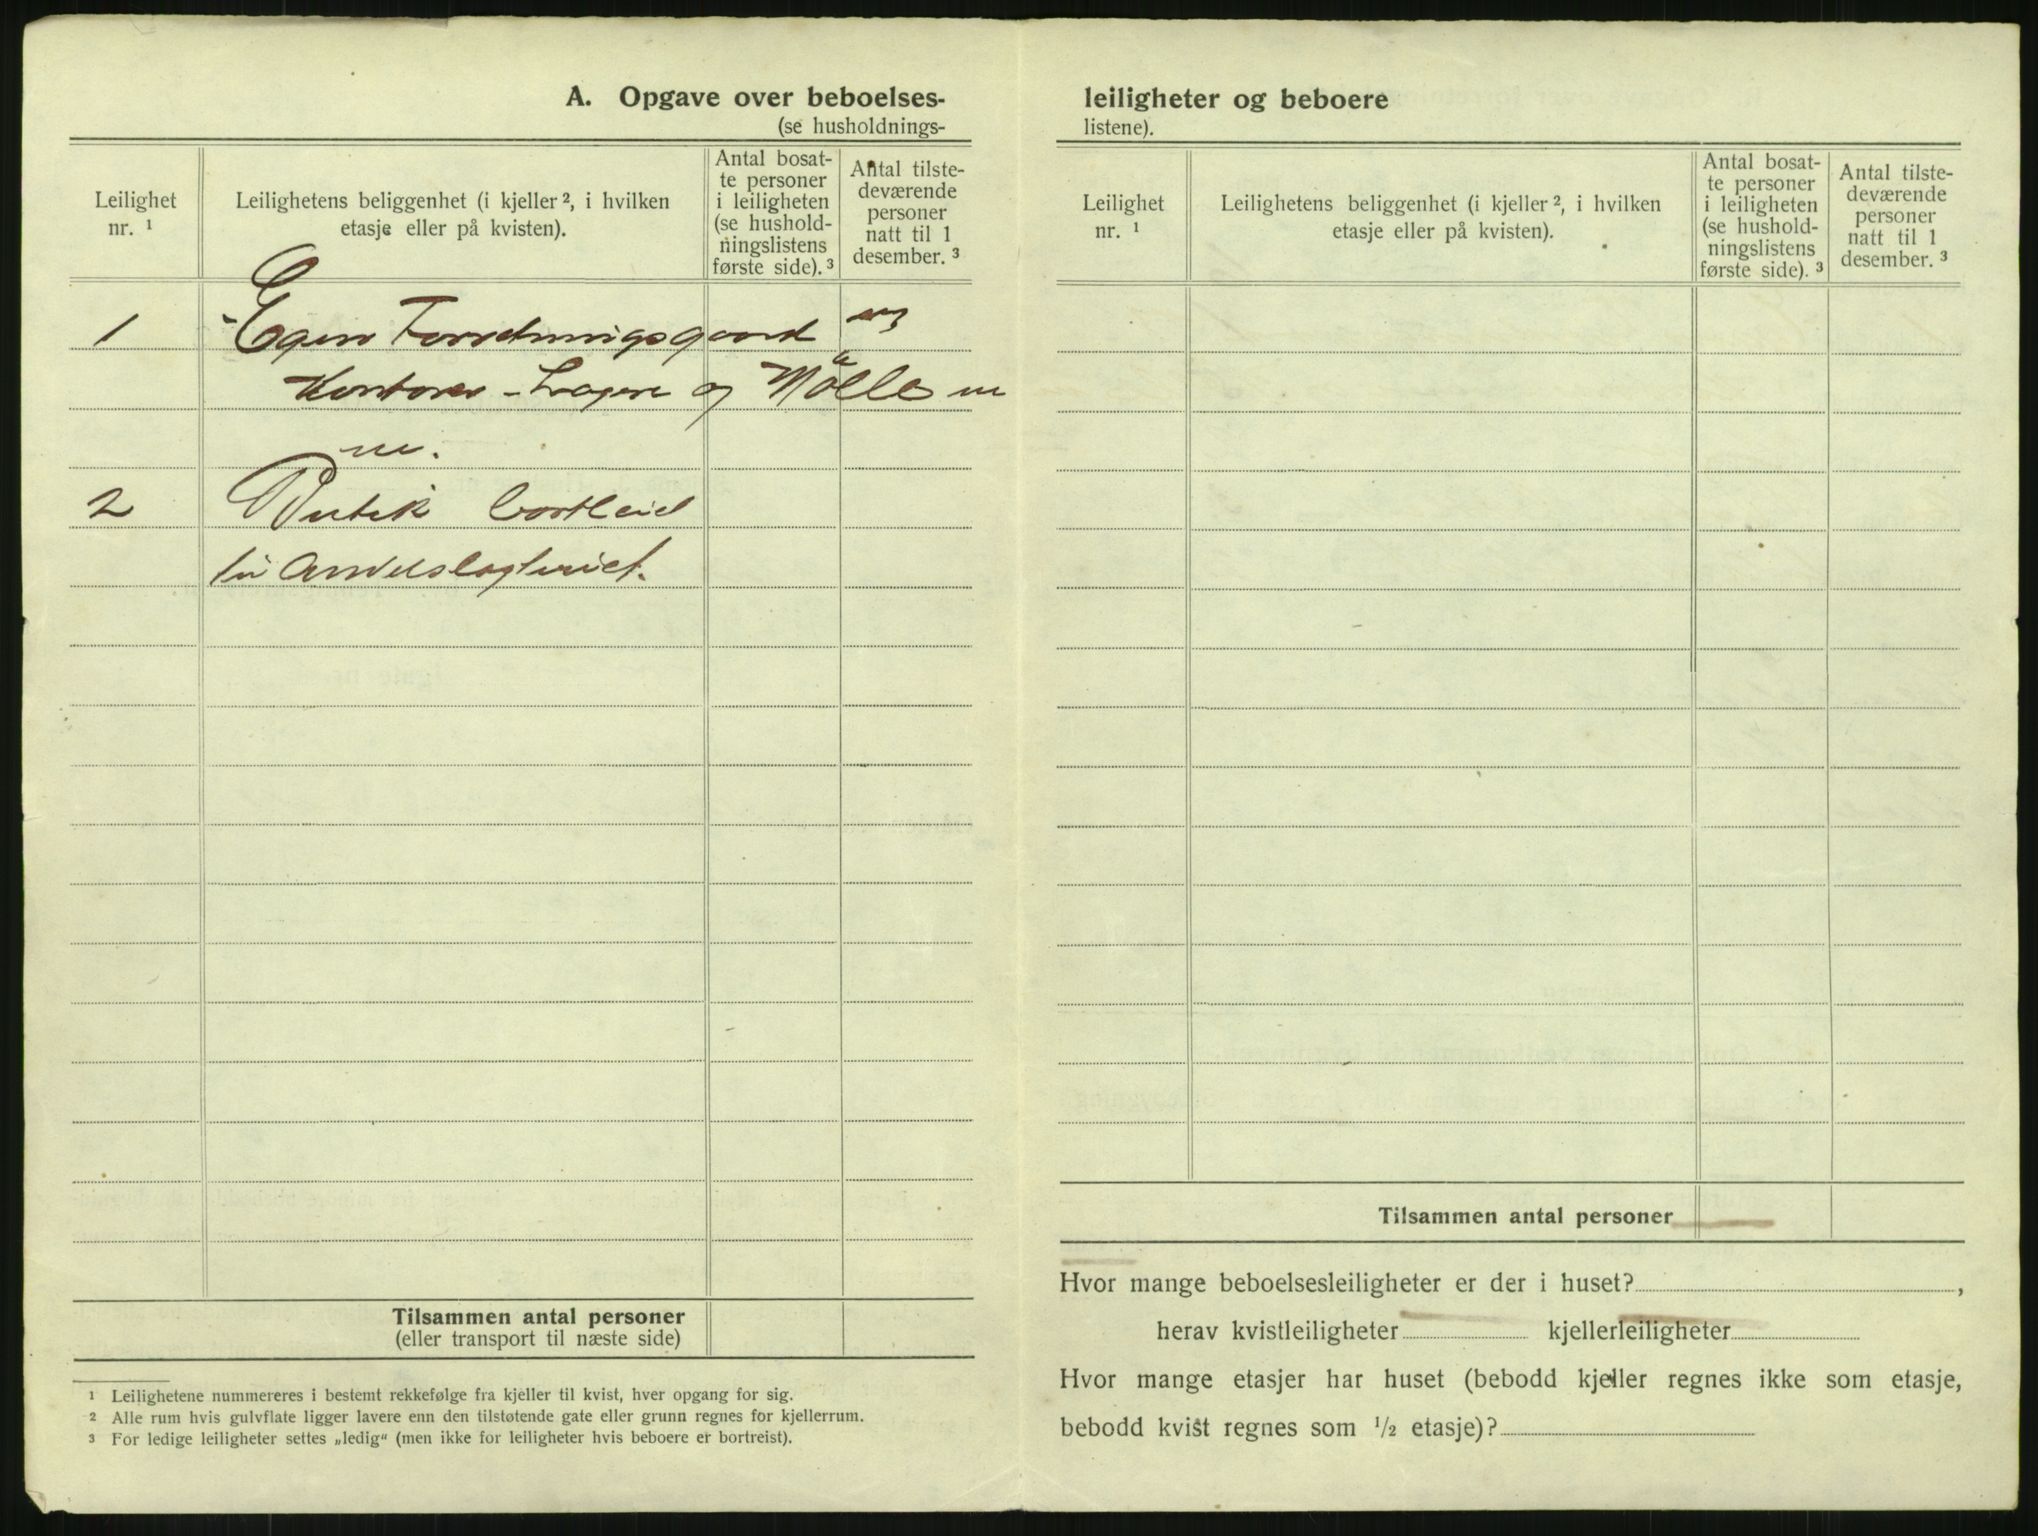 A. Opgave over beboelses-
(se husholdnings-
Leilighet
nr. ¹
Leilighetens beliggenhet (i kjeller ², i hvilken
etasje eller på kvisten).
Antal bosat-
te personer
i leiligheten
(se hushold-
ningslistens
første side). ³
Antal tilste-
deværende
personer
natt til 1
desember. ³
1 Egen Forretningsgaard
Kontorer - Lagere og Mölle m
m.
2 Butik bortleid
til Andelslagteriet.
Tilsammen antal personer
(eller transport til næste side)
¹ Leilighetene nummereres i bestemt rekkefølge fra kjeller til kvist, hver opgang for sig.
² Alle rum hvis gulvflate ligger lavere enn den tilstøtende gate eller grunn regnes for kjellerrum.
³ For ledige leiligheter settes „ledig“ (men ikke for leiligheter hvis beboere er bortreist).
leiligheter og beboere
listene).
Leilighet
nr. ¹
Leilighetens beliggenhet (i kjeller ², i hvilken
etasje eller på kvisten).
Antal bosat-
te personer
i leiligheten
(se hushold-
ningslistens
første side). ³
Antal tilste-
deværende
personer
natt til 1
desember. ³
Tilsammen antal personer
Hvor mange beboelsesleiligheter er der i huset? ,
herav kvistleiligheter kjellerleiligheter
Hvor mange etasjer har huset (bebodd kjeller regnes ikke som etasje,
bebodd kvist regnes som ½ etasje)?